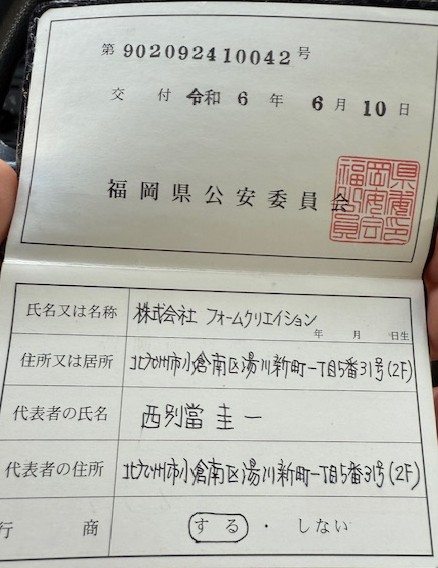 第 902092410042 号
交付 令和 6 年 6 月 10 日
福岡県公安委員会
氏名又は名称 株式会社 フォームクリエイション
年 月 日生
住所又は居所 北九州市小倉南区湯川新町一丁目5番31号(2F)
代表者の氏名 西別當 圭一
代表者の住所 北九州市小倉南区湯川新町一丁目5番31号(2F)
行商 する ・ しない